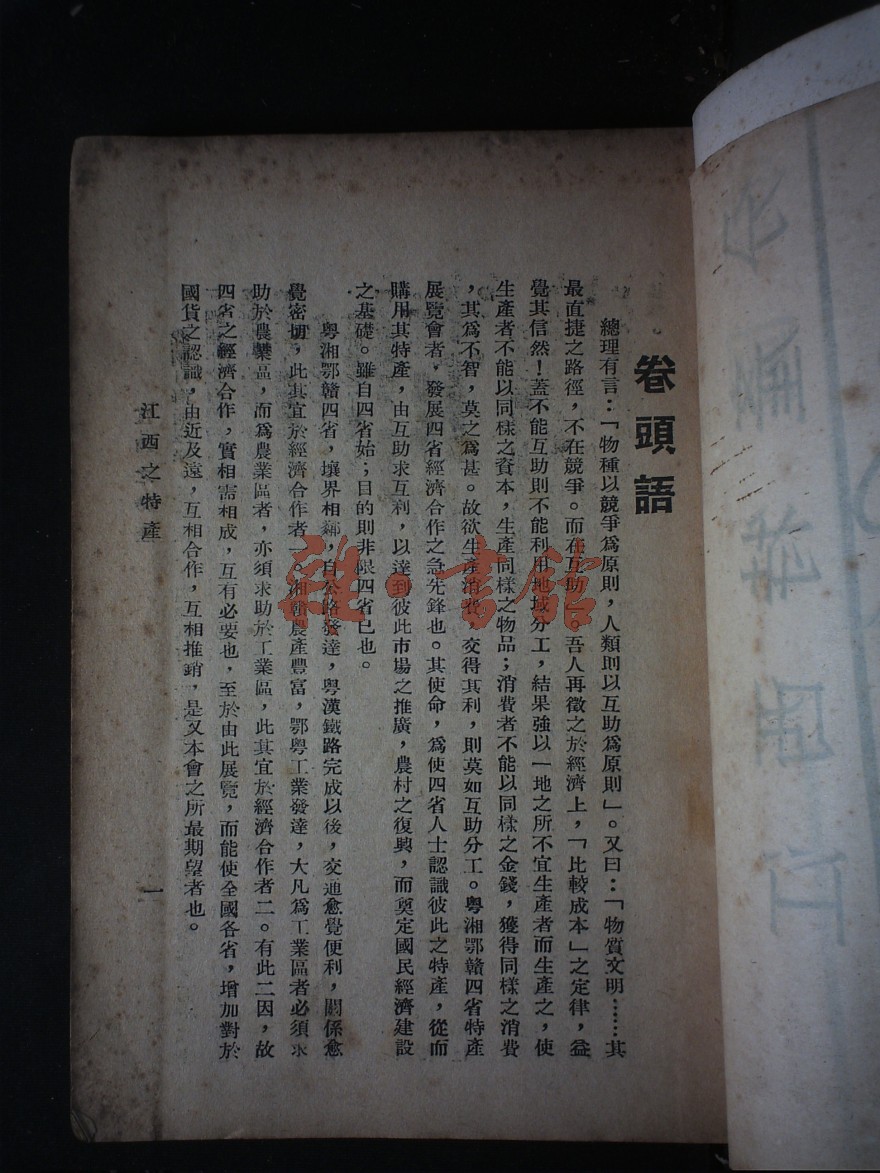 卷頭語
總理有言：「物種以競爭爲原則，人類則以互助爲原則」。又曰：「物質文明……其
最直捷之路徑，不在競爭。而在互助」。吾人再徵之於經濟上，「比較成本」之定律，益
覺其信然！蓋不能互助則不能利用地域分工，結果強以一地之所不宜生產者而生產之，使
生產者不能以同樣之資本，生產同樣之物品；消費者不能以同樣之金錢，獲得同樣之消費
，其爲不智，莫之爲甚。故欲生產消費，交得其利，則莫如互助分工。粵湘鄂贛四省特產
展覽會者，發展四省經濟合作之急先鋒也。其使命，爲使四省人士認識彼此之特產，從而
購用其特產，由互助求互利，以達到彼此市場之推廣，農村之復興，而奠定國民經濟建設
之基礎。雖自四省始；目的則非限四省已也。
粵湘鄂贛四省，壤界相鄰，自公路發達，粵漢鐵路完成以後，交通愈覺便利，關係愈
覺密切，此其宜於經濟合作者一。湘贛農產豐富，鄂粵工業發達，大凡爲工業區者必須求
助於農業區，而爲農業區者，亦須求助於工業區，此其宜於經濟合作者二。有此二因，故
四省之經濟合作，實相需相成，互有必要也，至於由此展覽，而能使全國各省，增加對於
國貨之認識，由近及遠，互相合作，互相推銷，是又本會之所最期望者也。
江西之特產
一
雜·書館